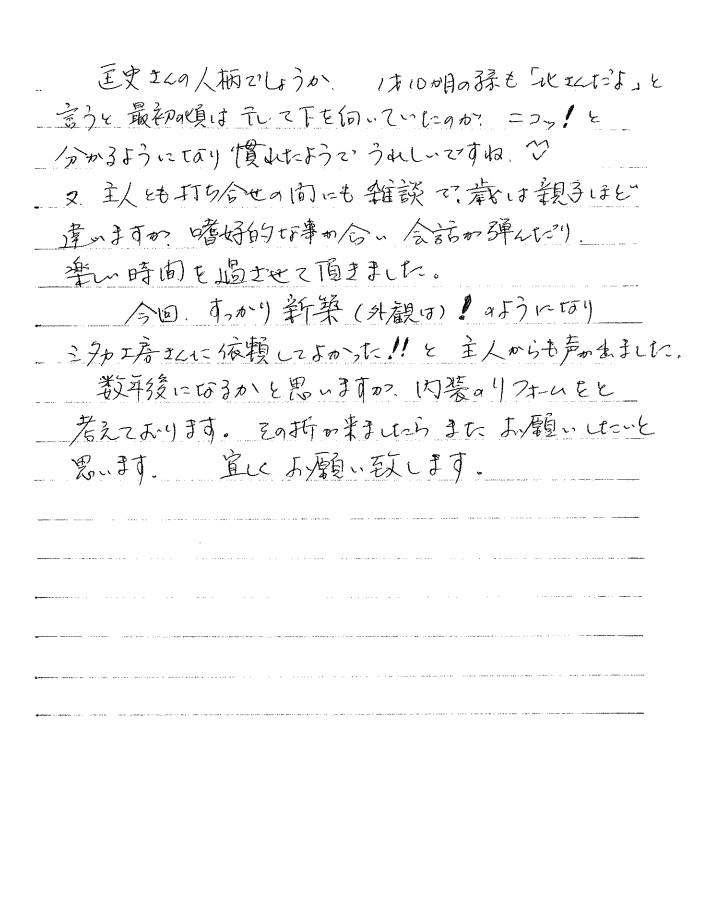 匡史さんの人柄でしょうか、 1才10か月の孫も「北さんだよ」と
言うと最初の頃は テレて下を向いていたのが、ニコッ!と
分かるようになり 慣れたようで うれしいですね。♡
又、主人とも打ち合せの間にも 雑談で、歳は親子ほど
違いますが、嗜好的な事が合い 会話が弾んだり、
楽しい時間を過させて頂きました。
今回、すっかり新築(外観は)!のようになり
ミタカ工房さんに依頼してよかった!!と 主人からも声が出ました。
数年後になるかと思いますが、内装のリフォームをと
考えております。その折が来ましたら また お願いしたいと
思います。 宜しく お願い致します。